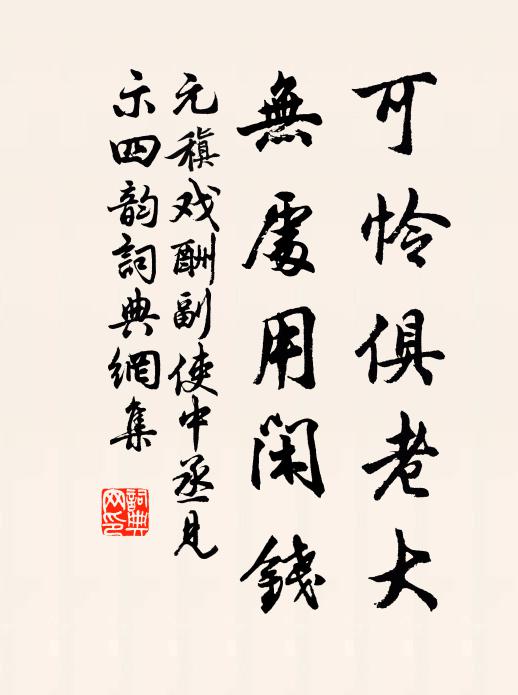 可怜俱老大
無處用閑錢
元稹戏酬副使中丞見
示四韵詞典網集
詞典网印